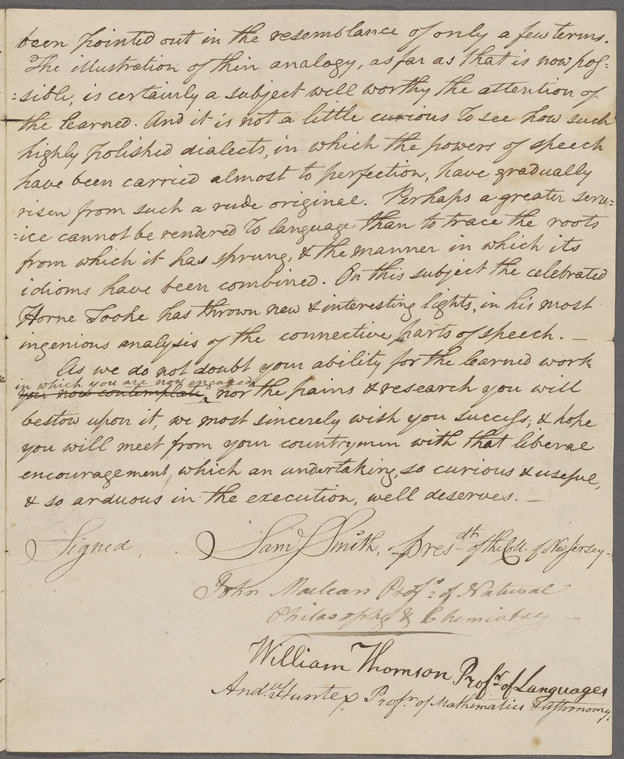 been pointed out in the resemblance of only a few terms.
The illustration of their analogy, as far as that is now pos=
=sible, is certainly a subject well worthy the attention of
the learned. And it is not a little curious to see how such
highly polished dialects, in which the powers of speech
have been carried almost to perfection, have gradually
risen from such a rude original. Perhaps a greater serv=
=ice cannot be rendered to language than to trace the roots
from which it has sprung, & the manner in which its
idioms have been combined. On this subject the celebrated
Horne Tooke has thrown new & interesting lights, in his most
ingenious analysis of the connective parts of speech. —
As we do not doubt your ability for the learned work
in which you are now engaged
you now contemplate, nor the pains & research you will
bestow upon it, we most sincerely wish you success; & hope
you will meet from your countrymen with that liberal
encouragement, which an undertaking, so curious & useful,
& so arduous in the execution, well deserves. —
Signed, Saml. Smith, Presdt. of the Coll. of New Jersey
John Maclean Profsr. of Natural
Philosophy & Chemistry —
William Thomson Profsr. of Languages
Andw. Hunter Profsr. of Mathematics & Astronomy.